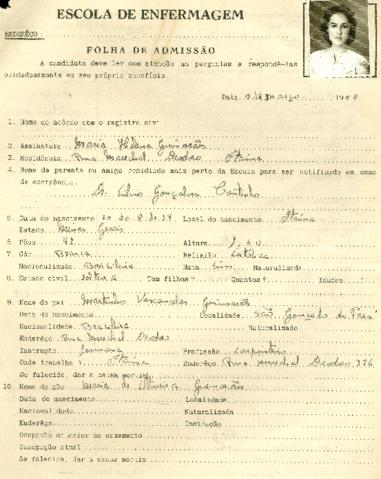 ESCOLA DE ENFERMAGEM
ENDERÊÇO:
FOLHA DE ADMISSÃO
A candidata deve ler com atenção as perguntas e respondê-las
cuidadosamente em seu próprio benefício.
Data
1. Nome de acôrdo com o registro civil
2. Assinatura Maria Helena Guimarães
3. Residência Rua Marechal Deodoro Itaúna
4. Nome de parente ou amigo residindo mais perto da Escola para ser notificado em caso
de emergência.
Gonçalves Coutinho
5. Data do nascimento Local do nascimento Itaúna
Estado Minas Gerais
6. Pêso Altura 1,60
7. Côr Branca Religião Católica
Nacionalidade Brasileira Nata Sim Naturalizada
8. Estado civil Solteira Tem filhos? Quantos? Idades
9. Nome do pai Vasconcelos Guimarães
Data do nascimento Localidade São Gonçalo do Pará
Nacionalidade Brasileira Naturalizado
Enderêço Rua Marechal Deodoro
Instrução Primária Profissão carpinteiro
Onde trabalha Itaúna Enderêço Rua Marechal Deodoro 376
Se falecido, dar a causa mortis
10. Nome da mãe Maria de Oliveira Guimarães
Data do nascimento Localidade
Nacionalidade Naturalizada
Enderêço Instrução
Ocupação anterior ao casamento
Ocupação atual
Se falecida, dar a causa mortis